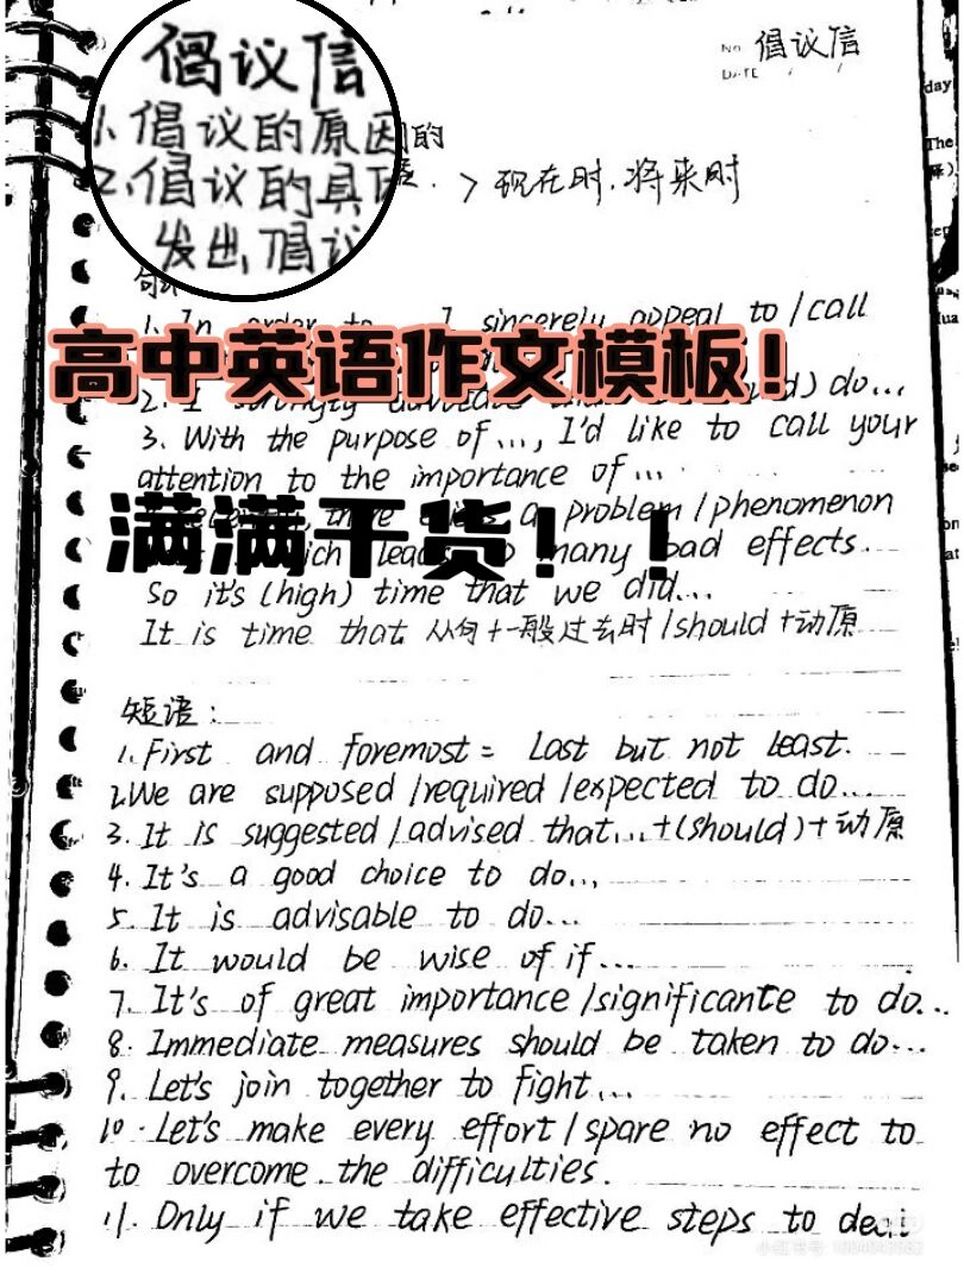 倡议信
1.倡议的原因
2.倡议的具
发出倡议
No 倡议信
DATE / /
day
The
的
> 现在时.将来时
1. In order to I sincerely appeal to / call
高中英语作文模板!
2. I strongly do...
3. With the purpose of..., I'd like to call your
attention to the importance of ...
a problem / phenomenon
满满干货!!
many bad effects.
So it's (high) time that we did...
It is time that 从句+一般过去时 / should +动原
短语:
1. First and foremost = Last but not least.
2.We are supposed / required / expected to do...
3. It is suggested / advised that...+(should)+动原
4. It's a good choice to do...
5. It is advisable to do...
6. It would be wise of if...
7. It's of great importance / significante to do...
8. Immediate measures should be taken to do...
9. Let's join together to fight...
10. Let's make every effort / spare no effect to
to overcome the difficulties.
11. Only if we take effective steps to deal